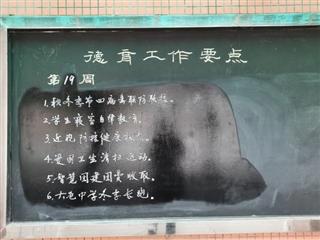 德育工作要点
第19周
1.秋冬季节四病毒联防联控。
2.学生寝室自律教育。
3.近视防控健康
4.爱国卫生清扫运动。
5.智慧团建团费收取。
6.中学冬季长跑。